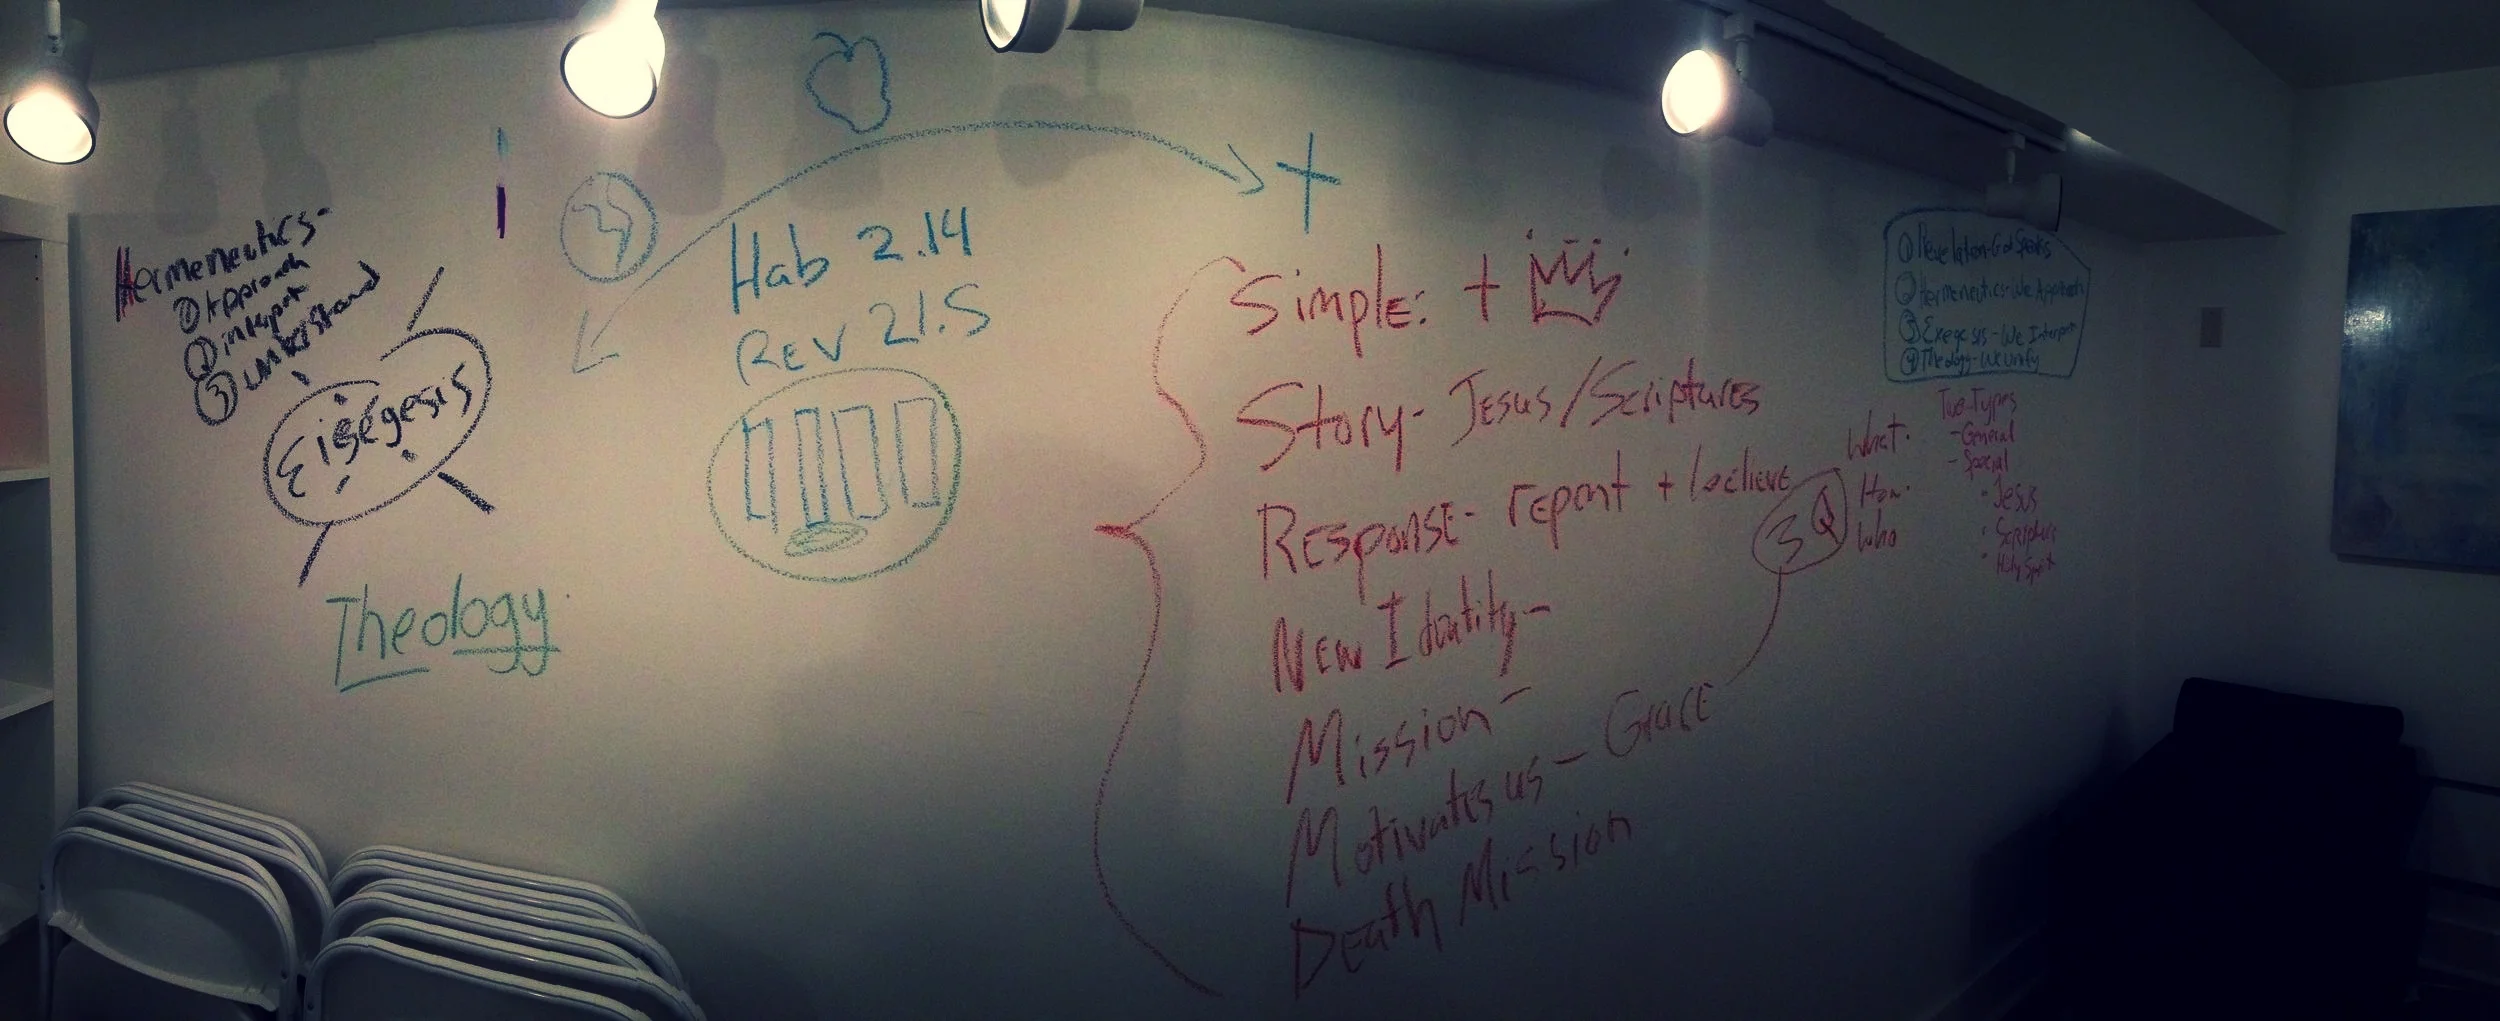 Hermeneutics-
① Approach
② interpret
③ understand
Eisegesis
Theology
Hab 2.14
Rev 21.5
Simple: +
Story- Jesus/Scriptures
Response- repent + believe
New Identity-
Mission-
Motivates us - Grace
Death Mission
3Q
What.
How.
Who
① Revelation-God Speaks
② Hermeneutics-We Approach
③ Exegesis-We Interpret
④ Theology-We Unify
Two-Types
- General
- Special
· Jesus
· Scripture
· Holy Spirit